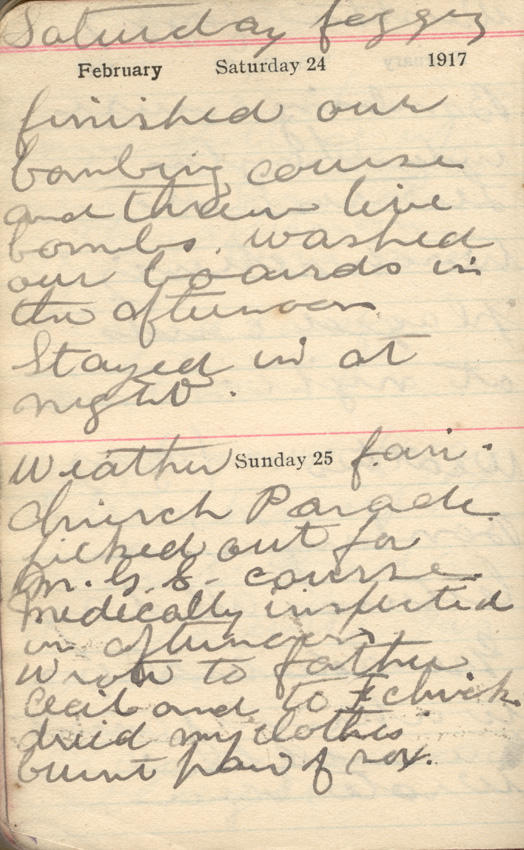 Saturday foggy
February Saturday 24 1917
finished our
bombing course
and threw live
bombs. washed
our boards in
the afternoon.
Stayed in at
night.
Weather Sunday 25 fair.
Church Parade
picked out for
M. G. S. course.
medically inspected
in afternoon
wrote to father
Cecil and to
dried my clothes
burnt pair of sox.